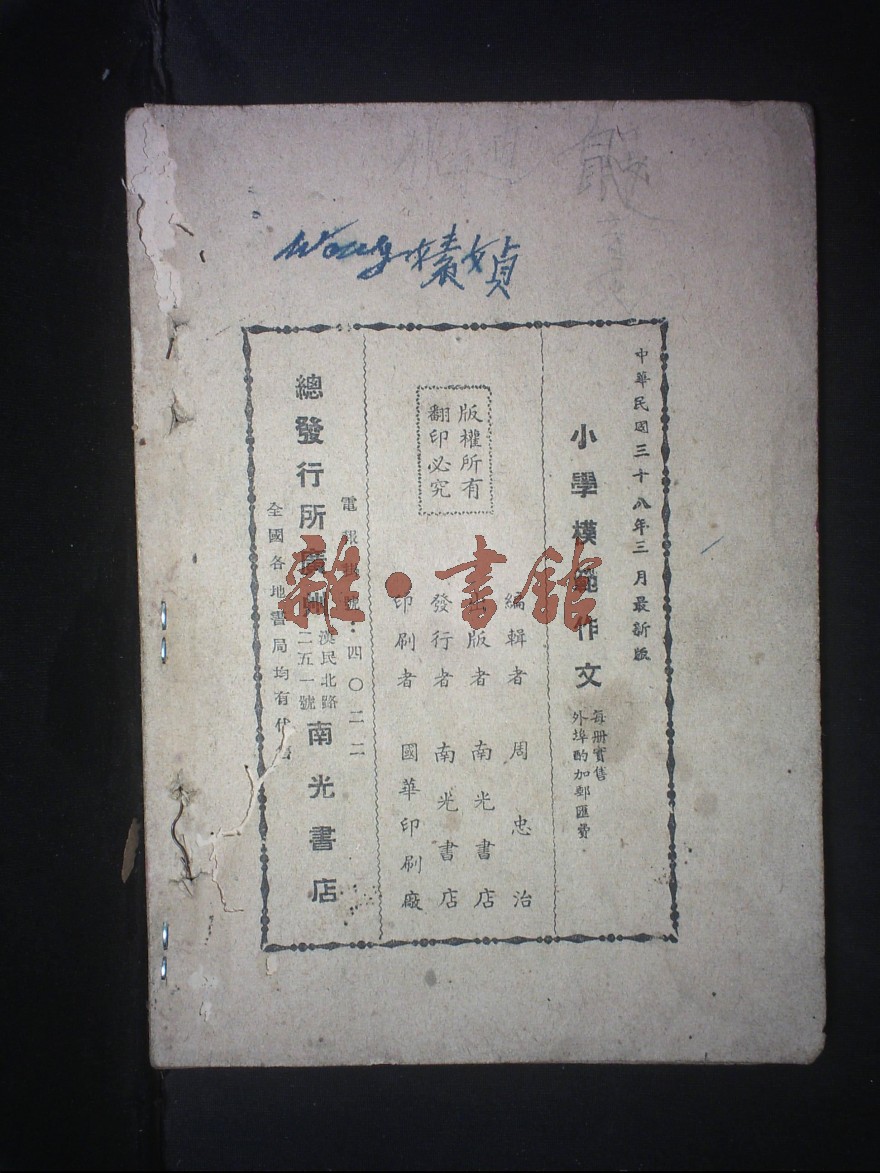 Wong 素貞
中華民國三十八年三月最新版
小學模範作文
每册實售
外埠酌加郵匯費
編輯者 周忠治
出版者 南光書店
發行者 南光書店
印刷者 國華印刷廠
版權所有
翻印必究
電報掛號·四〇二二
總發行所廣州漢民北路二五一號南光書店
全國各地書局均有代售
雜·書館